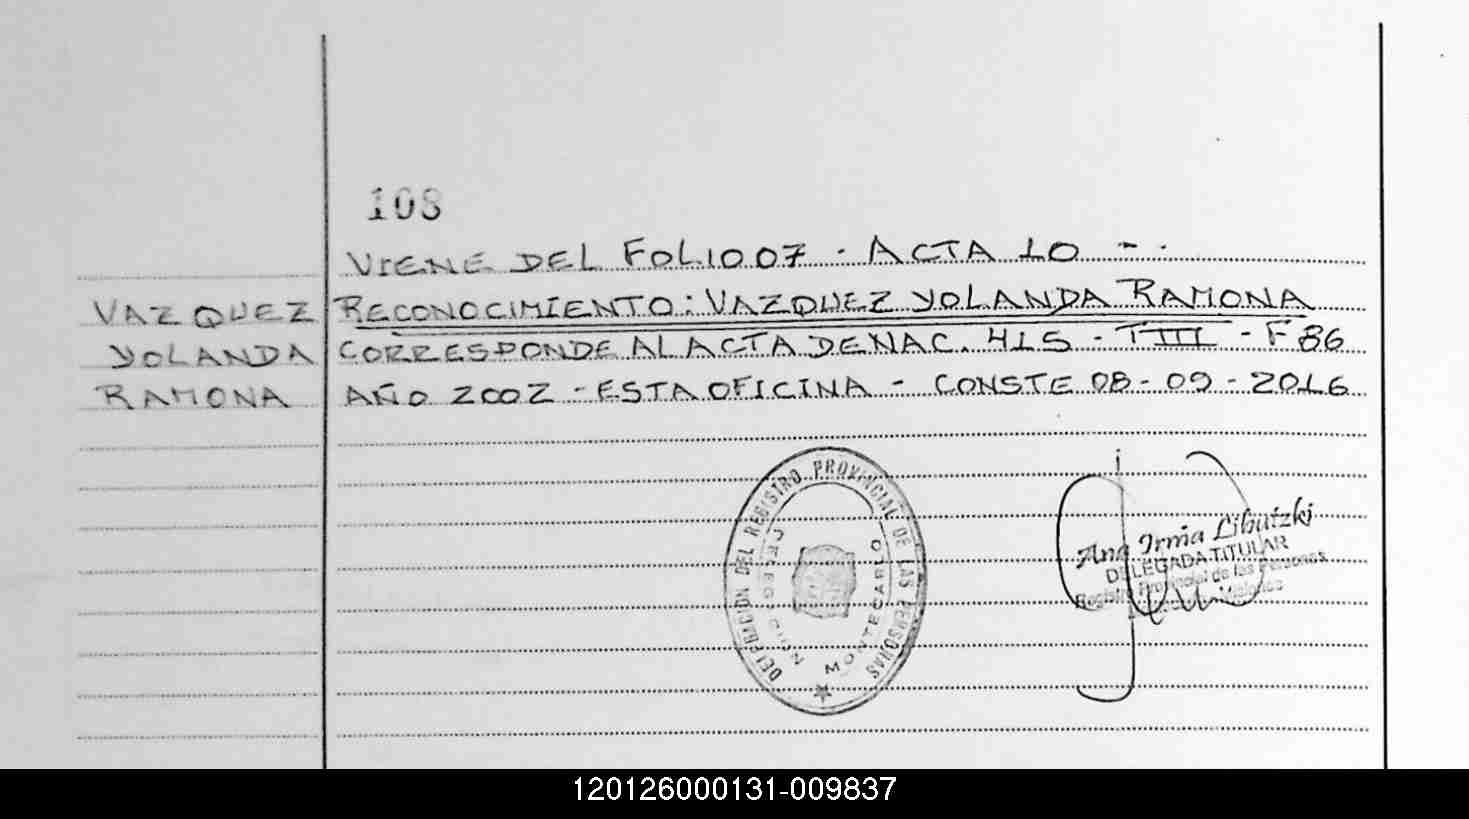 108
VIENE DEL FOLIO 07 - ACTA 10 - -
VAZQUEZ RECONOCIMIENTO: VAZQUEZ YOLANDA RAMONA
YOLANDA CORRESPONDE AL ACTA DE NAC. 415 - TIII - F 86
RAMONA AÑO 2002 - ESTA OFICINA - CONSTE 08-09-2016
DEL REGISTRO PROVINCIAL DE LAS PERSONAS
MONTECARLO
Ana Irma Libutzki
DELEGADA TITULAR
Registro Provincial de las Personas
120126000131-009837